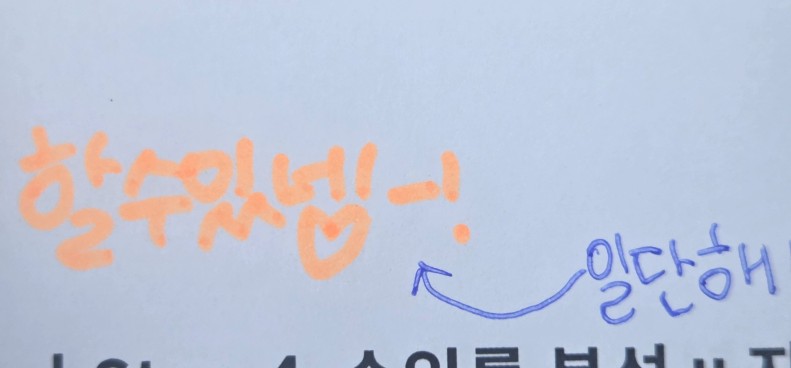 할수있넵-!
일단해